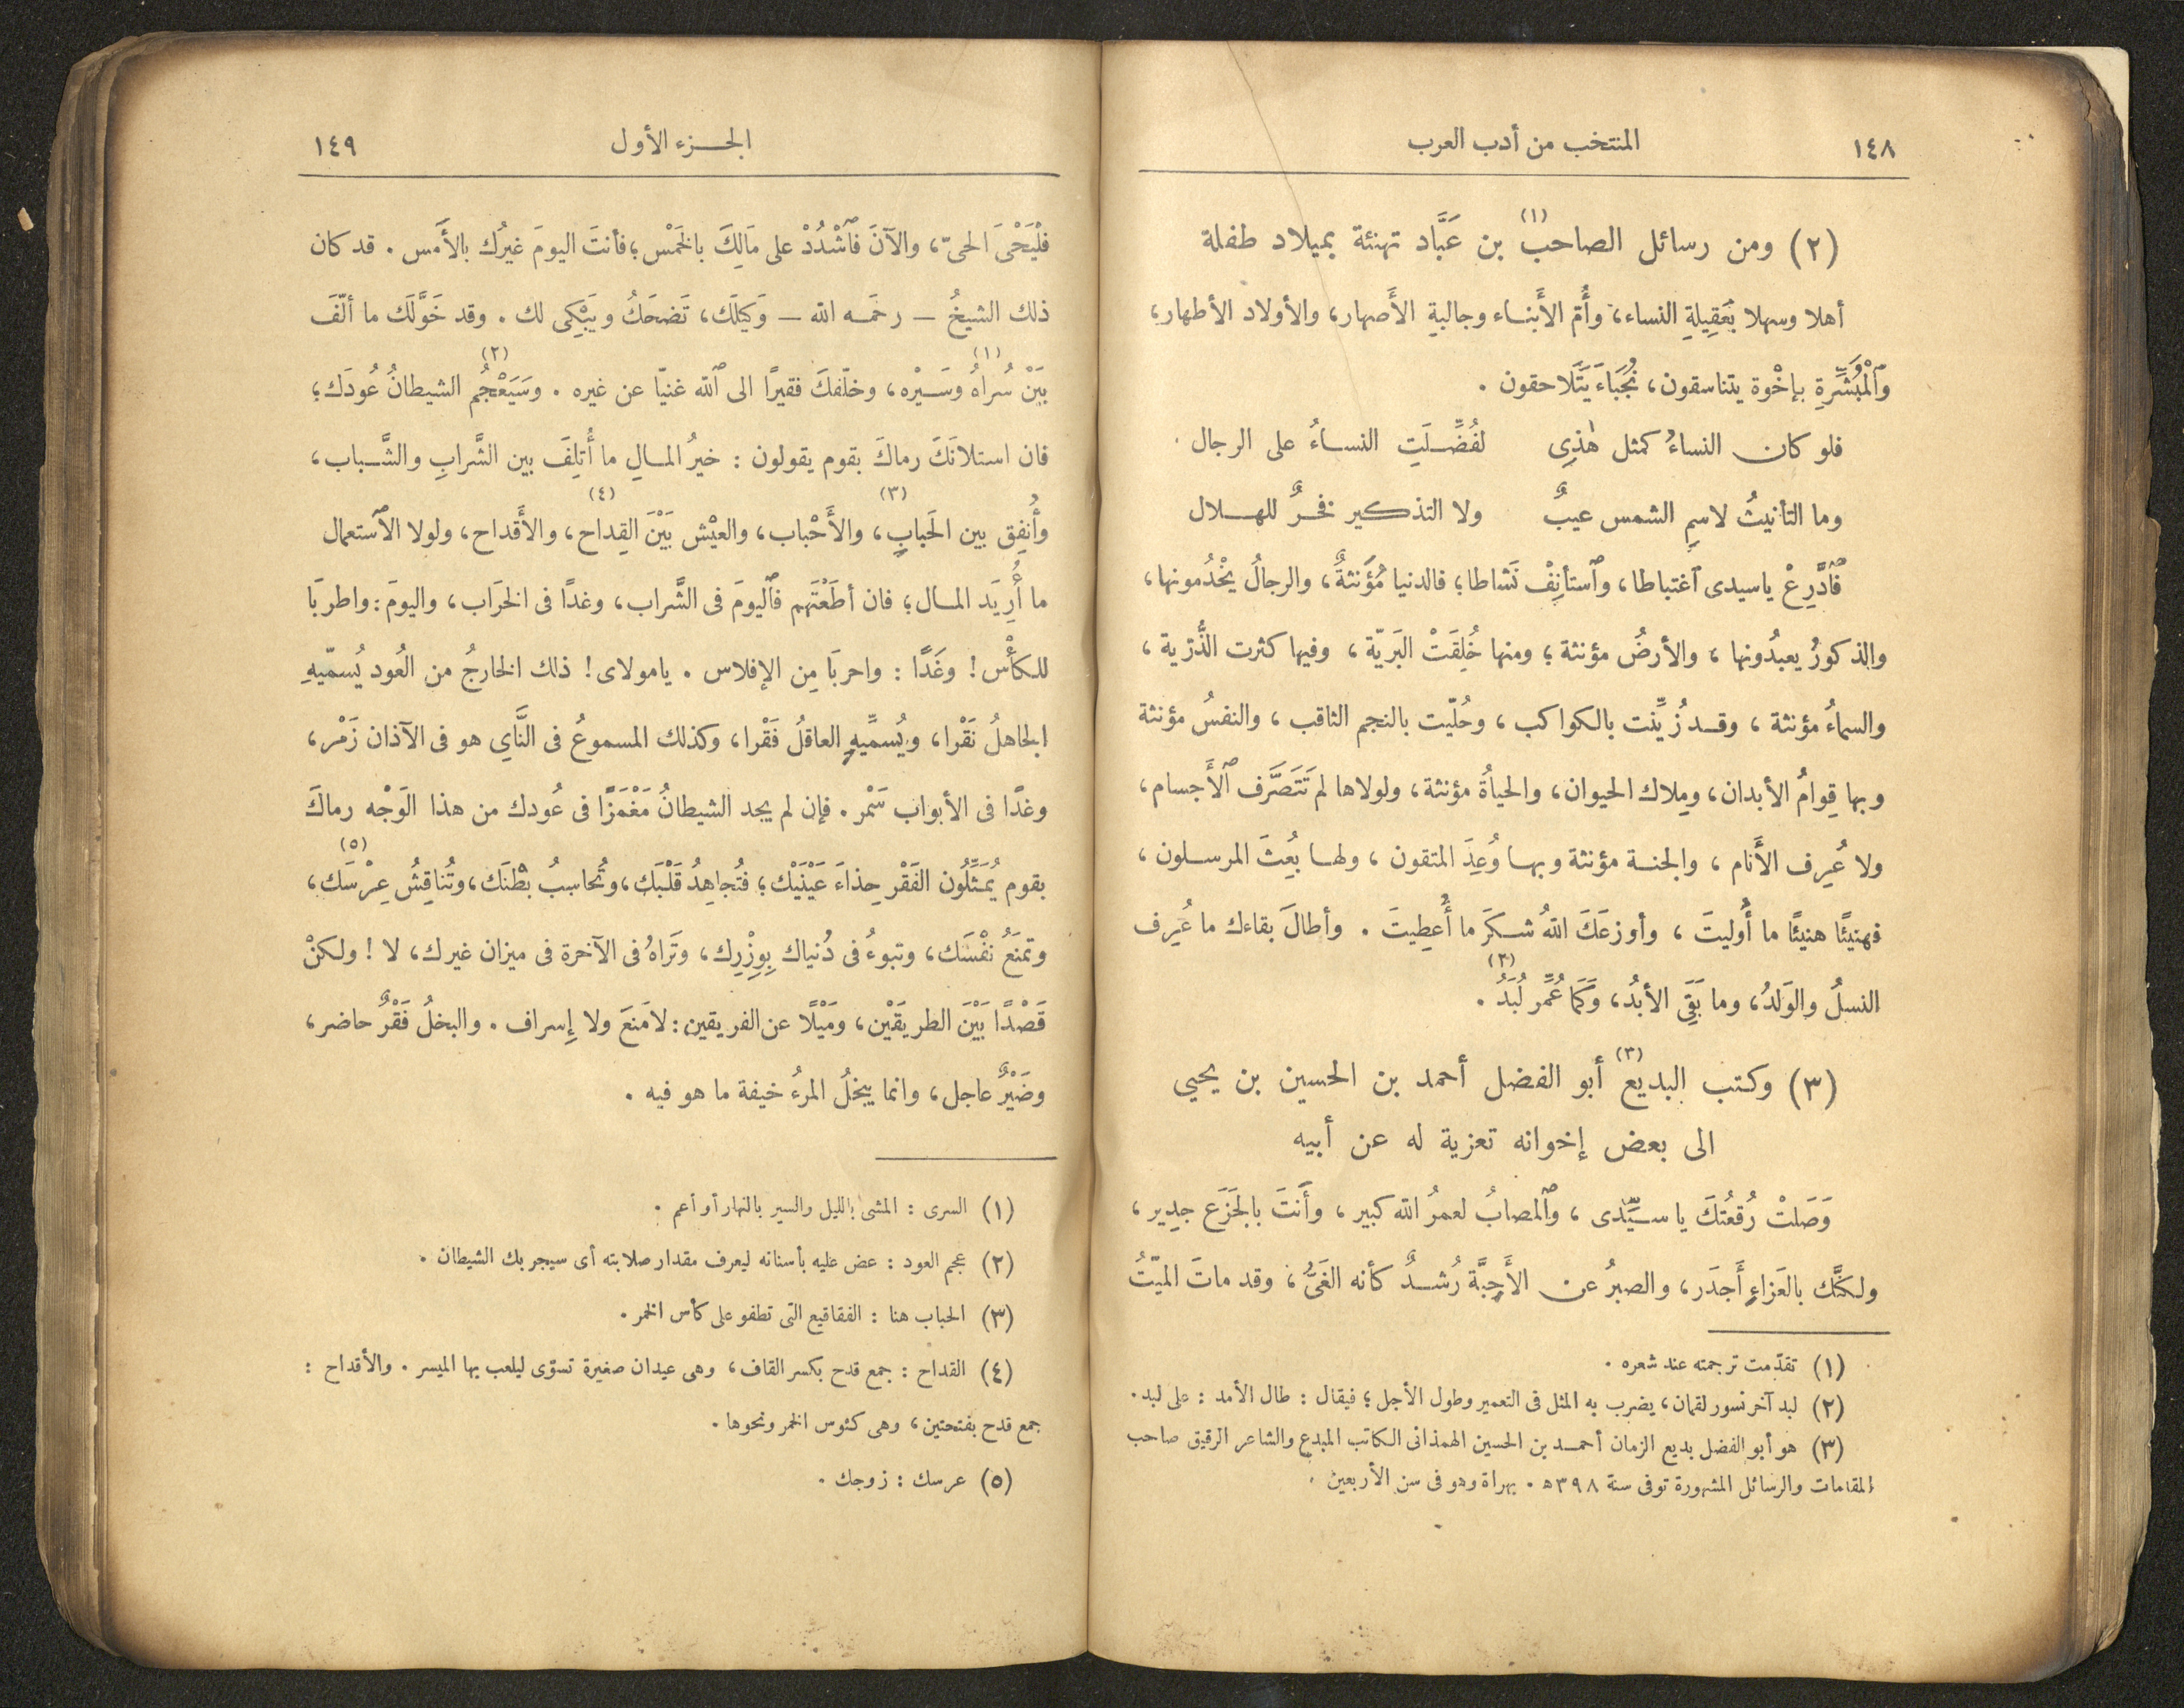 ١٤٨
المنتخب من أدب العرب
(٢) ومن رسائل الصاحب (١) بن عَبَّاد تهنئة بميلاد طفلة
أهلا وسهلا بعَقِيلةِ النساء، وأُمّ الأبنـاء وجالبةِ الأَصهار، والأولاد الأطهار،
وٱلْمُبَشِّرةِ بإخْوة يتناسقون، نُجَبَاءَ يَتَلاحقون .
فلو كان النساءُ كمثل هٰذِى لفُضِّـلَتِ النسـاءُ على الرجال .
وما التأنيثُ لاسمِ الشمس عيبٌ ولا التذكير فخـرٌ للهـلال
فٱدَّرِعْ ياسيدى ٱغتباطا، وٱستأنِفْ نَشاطا؛ فالدنيا مُؤَنثةٌ، والرجالُ يخْدُمونها،
والذكورُ يعبدُونها، والأرضُ مؤنثة؛ ومنها خُلِقَتْ البَريّة، وفيها كثرت الذُّرّية،
والسماءُ مؤنثة، وقـد زُيِّنت بالكواكب، وحُلّيت بالنجم الثاقب، والنفسُ مؤنثة
وبها قِوامُ الأبدان، ومِلاك الحيوان، والحياةُ مؤنثة، ولولاها لم تَتَصَرَّف ٱلأَجسام،
ولا عُرِف الأَنام، والجنـة مؤنثة وبهـا وُعِدَ المتقون، ولهـا بُعِثَ المرسـلون،
فهنيئًا هنيئًا ما أُوليتَ، وأوزعَكَ اللهُ شكرَ ما أُعطِيتَ . وأطالَ بقاءك ما عُرِف
النسلُ والوَلدُ، وما بَقِىَ الأبدُ، وَكَما عُمِّر لُبَدُ (٢) .
(٣) وكتب البديع (٣) أبو الفضل أحمد بن الحسين بن يحيي
الى بعض إخوانه تعزية له عن أبيه
وَصَلتْ رُقعتُكَ يا سـيِّدى، وٱلمصابُ لعمرُ الله كبير، وأَنتَ بالجَزَع جدِير،
ولكنَّك بالعَزاءِ أَجدَر، والصبرُ عن الأَحِبَّة رُشـدٌ كأنه الغَىُّ، وقد ماتَ الميّتُ
(١) تقدّمت ترجمته عند شعره .
(٢) لبد آخر نسور لقمان، يضرب به المثل فى التعمير وطول الأجل؛ فيقال : طال الأمد : على لبد .
(٣) هو أبو الفضل بديع الزمان أحمـد بن الحسين الهمذانى الكاتب المبدع والشاعر الرقيق صاحب
المقامات والرسائل المشهورة توفى سنة ٣٩٨هـ . بهراة وهو فى سن الأربعين .
الجـزء الأول
١٤٩
فلْيَحْىَ الحىّ، والآنَ فٱشْدُدْ على مَالِكَ بالخَمْس؛ فأنتَ اليومَ غيرُك بالأَمس . قد كان
ذلك الشيخُ – رحمَـه الله – وَكيلَك، تَضحَكُ ويَبْكِى لك . وقد خَوَّلَك ما ألّفَ
بيْنَ سُراهُ (١) وسَـيْره، وخلّفكَ فقيرًا الى ٱلله غنيّا عن غيره . وسَيَعْجُم (٢) الشيطانُ عُودَك؛
فان استلانَكَ رماكَ بقوم يقولون : خيرُ المـالِ ما أُتلِفَ بين الشَّرابِ والشَّـباب،
وأُنفِق بين الحَبابِ (٣)، والأَحْباب، والعيْش بَيْنَ القِداح (٤)، والأَقداح، ولولا ٱلاستعمال
ما أُرِيدَ المـال؛ فان أطَعْتَهم فٱليومَ فى الشَّراب، وغداً فى الخرَاب، واليومَ : واطربَا
للكأْس! وغَدًا : واحربَا مِن الإفلاس . يامولاى! ذلك الخارجُ من العُود يُسمّيهِ
الجاهلُ نَقْرا، ويُسمِّيهِ العاقلُ فَقْرا، وكذلك المسموعُ فى النَّايِ هو فى الآذان زَمْر،
وغدًا فى الأبواب سَمْر . فإن لم يجد الشيطانُ مَغْمَزًا فى عُودك من هذا الوَجْه رماكَ
بقوم يُمَثِّلُون الفَقْر حِذاءَ عَيْنَيْك؛ فتُجاهِدُ قَلْبَك، وتُحاسِبُ بطْنَك، وتُناقِشُ عِرْسَك (٥)،
وتمنَعُ نفْسَك، وتبوءُ فى دُنياك بِوِزْرِك، وتَراهُ فى الآخرة فى ميزان غيرك، لا ! ولكنْ
قَصْدًا بَيْنَ الطريقَيْن، ومَيْلًا عن الفريقين : لا مَنعَ ولا إسراف . والبخلُ فَقْرٌ حاضر،
وضَيْرٌ عاجل، وانما يبخلُ المرءُ خيفة ما هو فيه .
(١) السرى : المشى بالليل والسير بالنهار أو أعم .
(٢) عجم العود : عض عليه بأسنانه ليعرف مقدار صلابته أى سيجربك الشيطان .
(٣) الحباب هنا : الفقاقيع التى تطفو على كأس الخمر .
(٤) القداح : جمع قدح بكسر القاف، وهى عيدان صغيرة تسوّى ليلعب بها الميسر . والأقداح :
جمع قدح بفتحتين، وهى كئوس الخمر ونحوها .
(٥) عرسك : زوجك .